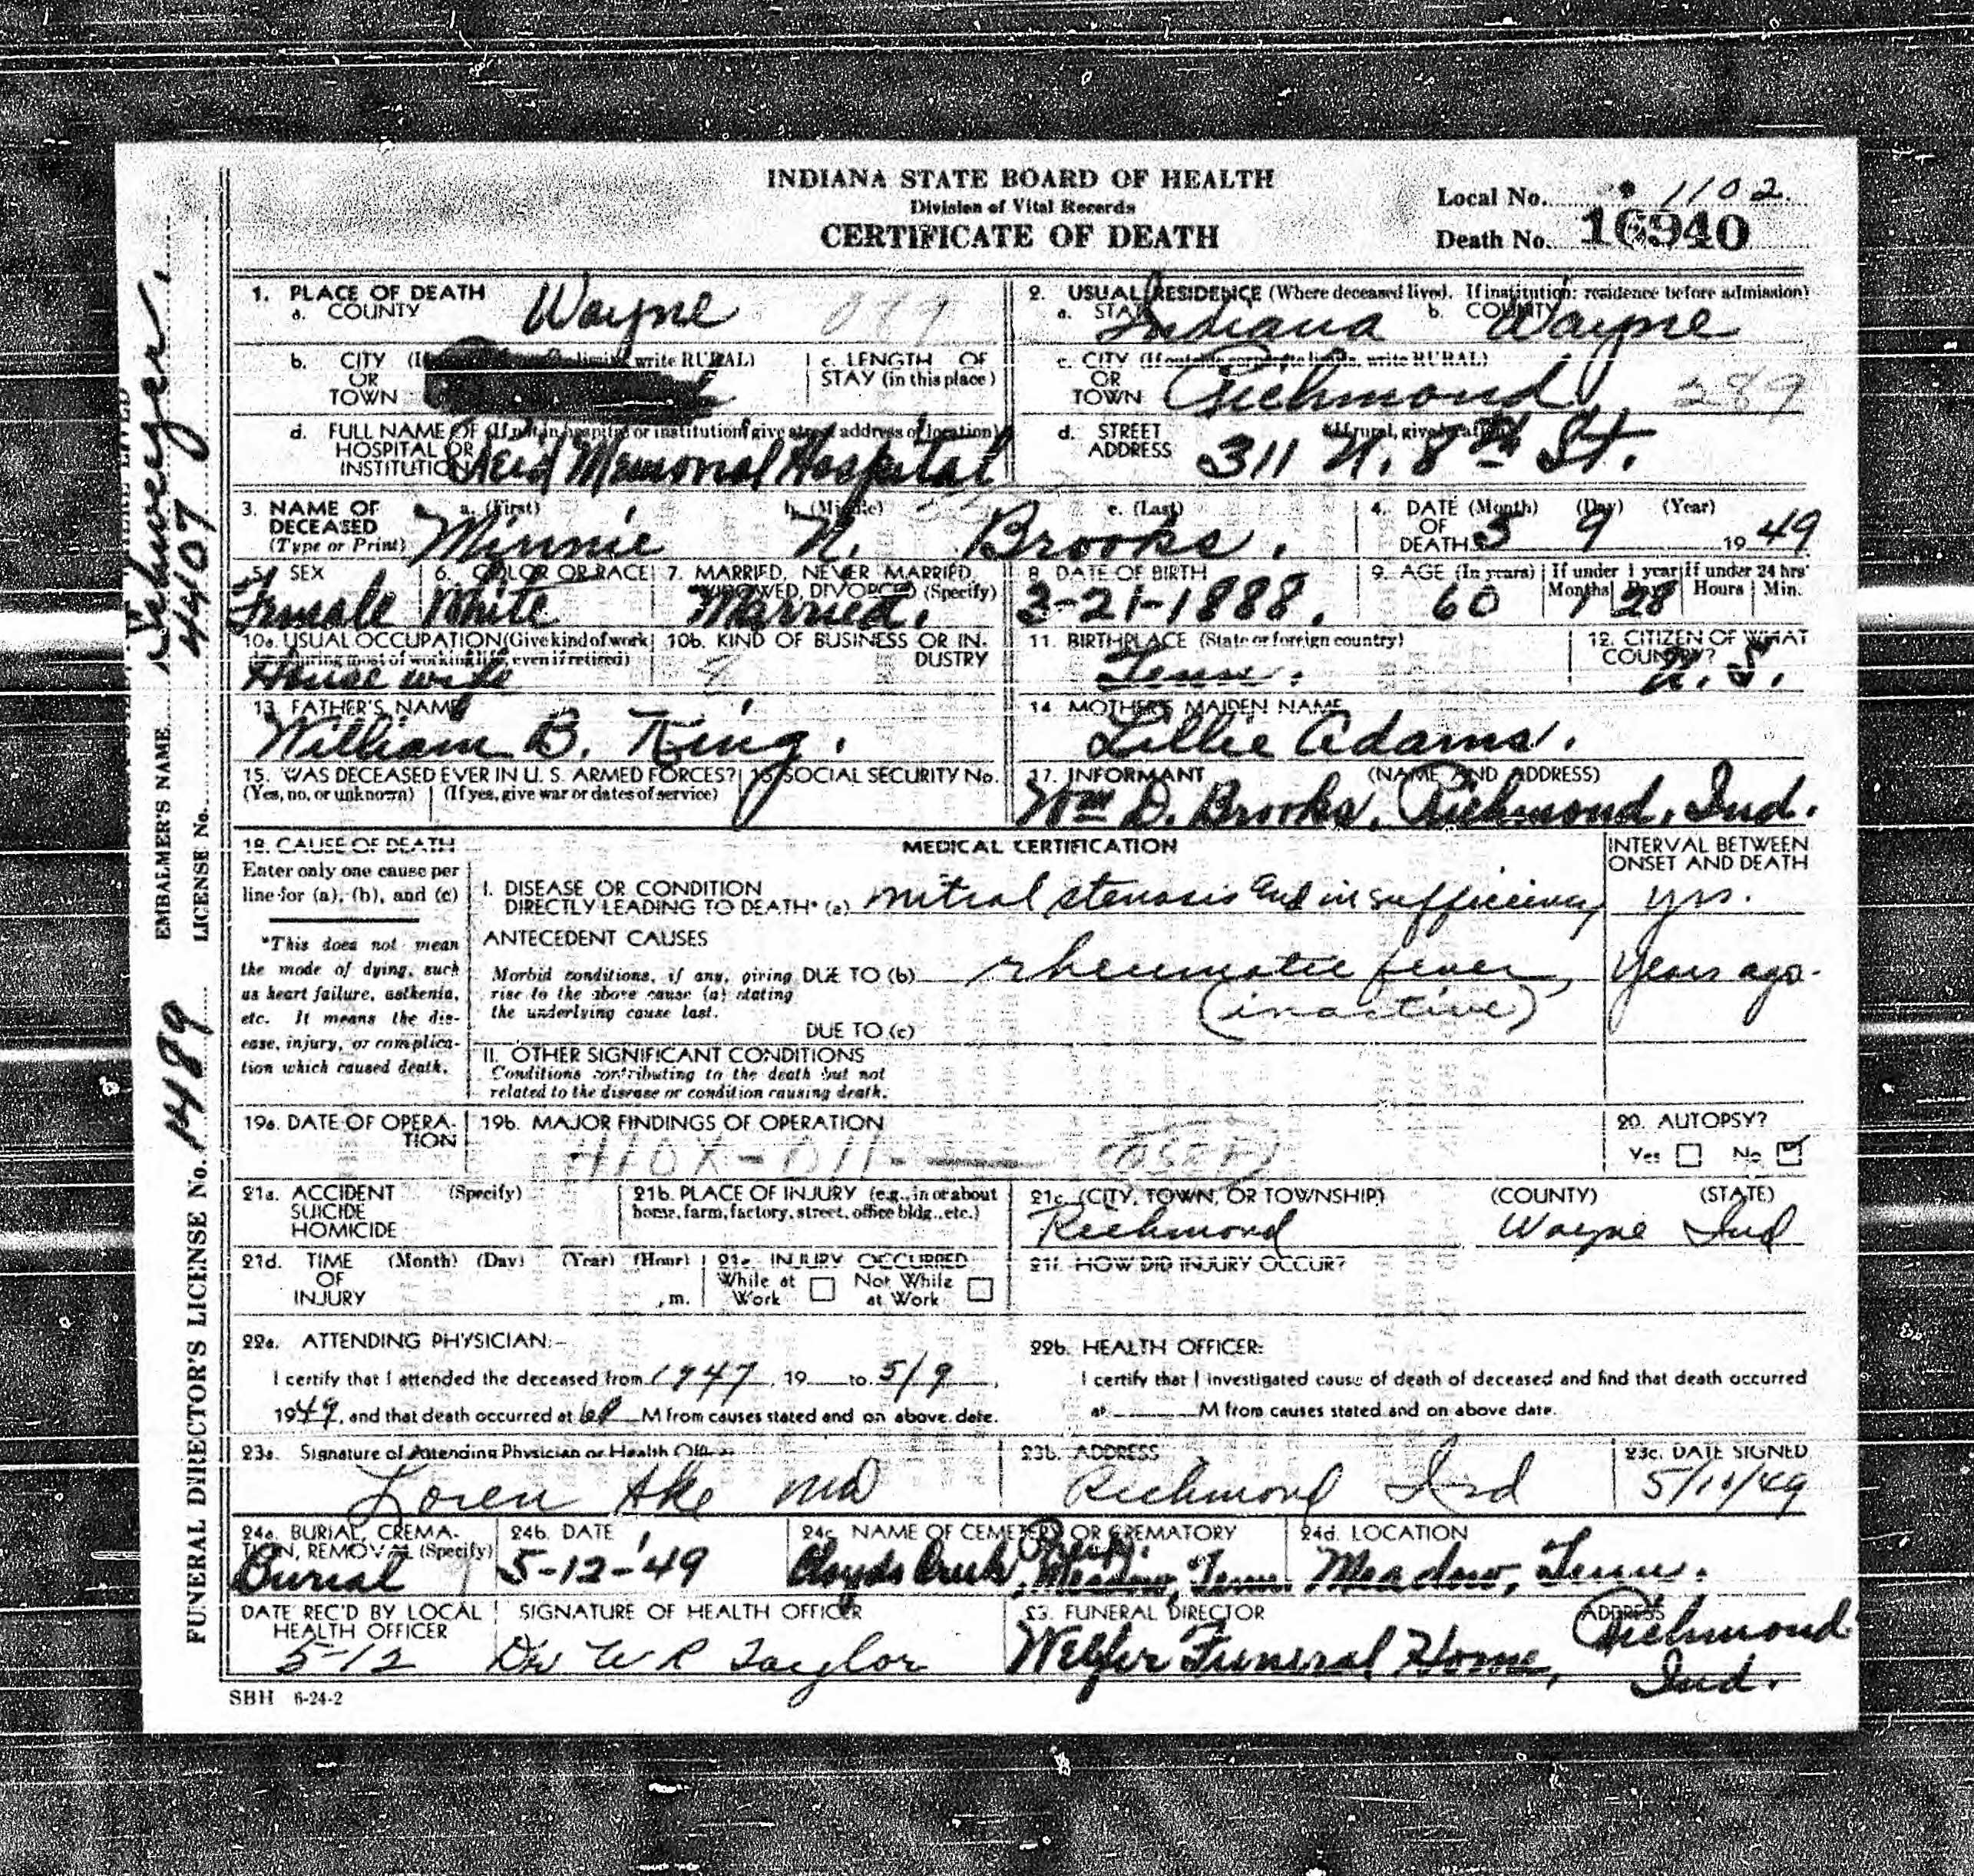 INDIANA STATE BOARD OF HEALTH
Division of Vital Records
CERTIFICATE OF DEATH
Local No. 1102.
Death No. 16940
1. PLACE OF DEATH
a. COUNTY Wayne
2. USUAL RESIDENCE (Where deceased lived. If institution: residence before admission)
a. STATE Indiana b. COUNTY Wayne
b. CITY OR TOWN write RURAL)
c. LENGTH OF STAY (in this place)
c. CITY (If outside corporate limits, write RURAL) OR TOWN Richmond 289
d. FULL NAME OF (If not in hospital or institution give street address or location) HOSPITAL OR INSTITUTION Reid Memorial Hospital
d. STREET ADDRESS 311 N. 8th St.
3. NAME OF DECEASED (Type or Print)
a. (First) Minnie b. (Middle) N. c. (Last) Brooks.
4. DATE OF DEATH (Month) 5 (Day) 9 (Year) 19 49
5. SEX Female
6. COLOR OR RACE White
7. MARRIED, NEVER MARRIED, WIDOWED, DIVORCED (Specify) Married.
8. DATE OF BIRTH 3-21-1888.
9. AGE (In years) 60 If under 1 year Months 1 Days 28 If under 24 hrs Hours Min.
10a. USUAL OCCUPATION (Give kind of work during most of working life, even if retired) House wife
10b. KIND OF BUSINESS OR INDUSTRY
11. BIRTHPLACE (State or foreign country) Tenn.
12. CITIZEN OF WHAT COUNTRY? U.S.
13. FATHER'S NAME William B. King.
14. MOTHER'S MAIDEN NAME Lillie Adams.
15. WAS DECEASED EVER IN U. S. ARMED FORCES?
(Yes, no, or unknown) (If yes, give war or dates of service)
16. SOCIAL SECURITY No.
17. INFORMANT (NAME AND ADDRESS)
Wm D. Brooks, Richmond, Ind.
18. CAUSE OF DEATH
Enter only one cause per
line for (a), (b), and (c)
MEDICAL CERTIFICATION
INTERVAL BETWEEN
ONSET AND DEATH
I. DISEASE OR CONDITION
DIRECTLY LEADING TO DEATH* (a) mitral stenosis and insufficiency yrs.
*This does not mean
the mode of dying, such
as heart failure, asthenia,
etc. It means the dis-
ease, injury, or complica-
tion which caused death.
ANTECEDENT CAUSES
Morbid conditions, if any, giving DUE TO (b) rheumatic fever, years ago.
rise to the above cause (a) stating (inactive)
the underlying cause last.
DUE TO (c)
II. OTHER SIGNIFICANT CONDITIONS
Conditions contributing to the death but not
related to the disease or condition causing death.
19a. DATE OF OPERA-
TION
19b. MAJOR FINDINGS OF OPERATION
410X-011-
20. AUTOPSY?
Yes No
21a. ACCIDENT (Specify)
SUICIDE
HOMICIDE
21b. PLACE OF INJURY (e.g., in or about
home, farm, factory, street, office bldg., etc.)
21c. (CITY, TOWN, OR TOWNSHIP) (COUNTY) (STATE)
Richmond Wayne Ind
21d. TIME (Month) (Day) (Year) (Hour)
OF
INJURY , m.
21e. INJURY OCCURRED
While at Work Not While at Work
21f. HOW DID INJURY OCCUR?
22a. ATTENDING PHYSICIAN:-
I certify that I attended the deceased from 1947, 19 to 5/9,
1949, and that death occurred at 6P M from causes stated and on above date.
22b. HEALTH OFFICER:
I certify that I investigated cause of death of deceased and find that death occurred
at M from causes stated and on above date.
23a. Signature of Attending Physician or Health Officer
Loren Ake MD
23b. ADDRESS
Richmond Ind
23c. DATE SIGNED
5/10/49
24a. BURIAL, CREMA-
TION, REMOVAL (Specify)
Burial
24b. DATE
5-12-'49
24c. NAME OF CEMETERY OR CREMATORY
Cloyds Creek, Meadow, Tenn.
24d. LOCATION
Meadow, Tenn.
DATE REC'D BY LOCAL
HEALTH OFFICER
5-12
SIGNATURE OF HEALTH OFFICER
Dr W R Taylor
23. FUNERAL DIRECTOR
Welfer Funeral Home,
ADDRESS
Richmond
Ind.
SBH 6-24-2
EMBALMER'S NAME
LICENSE No. 4407
FUNERAL DIRECTOR'S LICENSE No. 1489